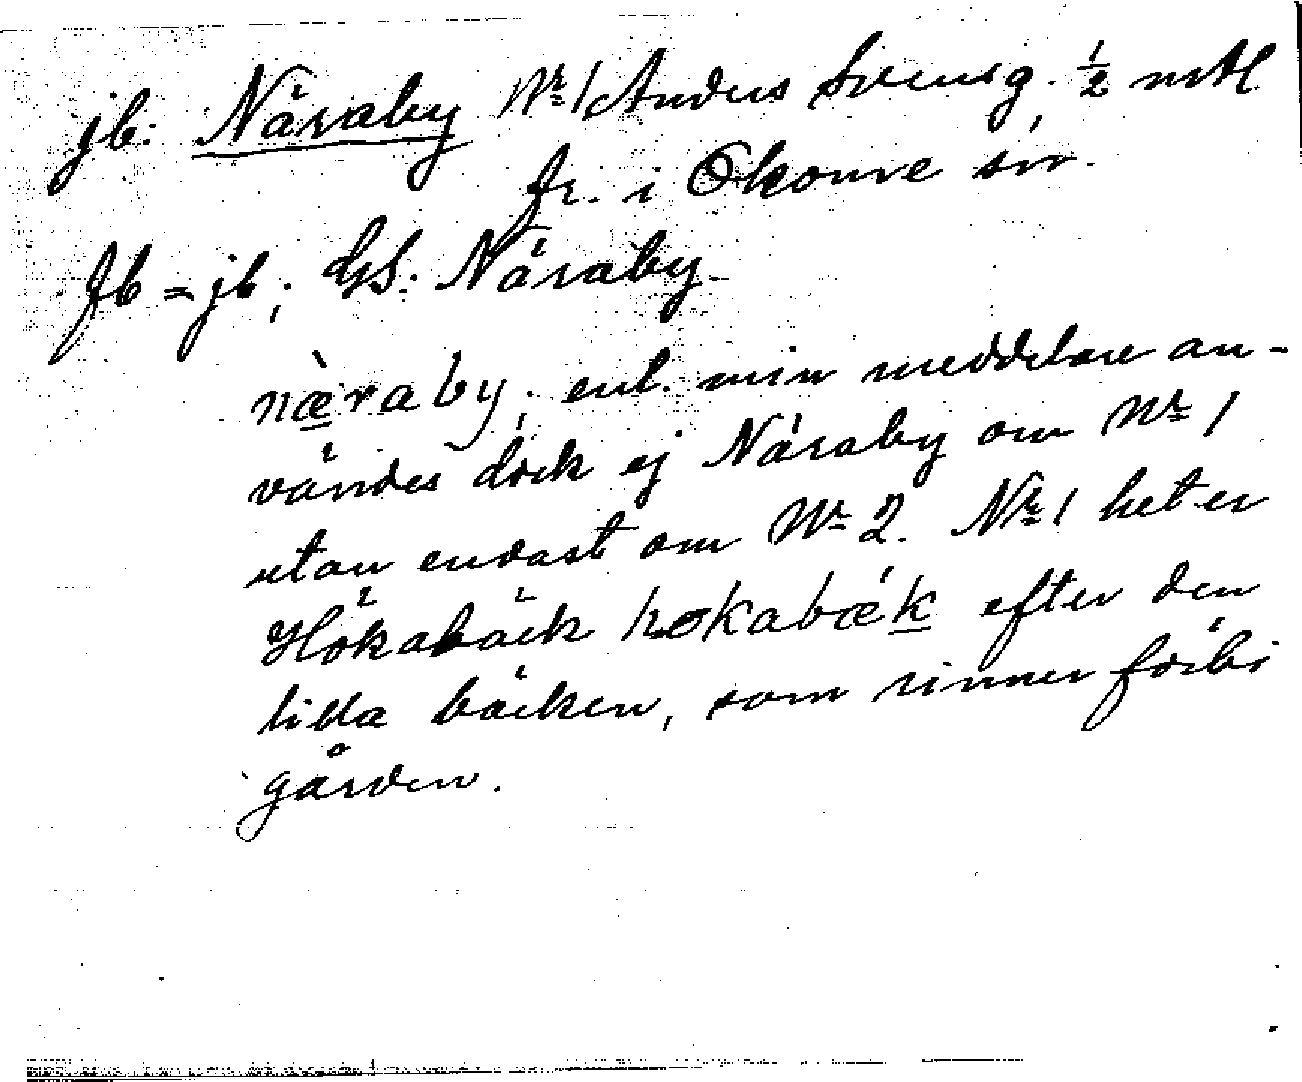 jb: Näraby Nr 1 Anders Svensg. ½ mtl
fr. i Skourve srr.
Jb = jb; GS: Näraby
næ̀raby; enl. min meddelare an-
vändes dock ej Näraby om Nr 1
utan endast om Nr 2. Nr 1 heter
Hökabäck høkabæk efter den
lilla bäcken, som rinner förbi
gården.